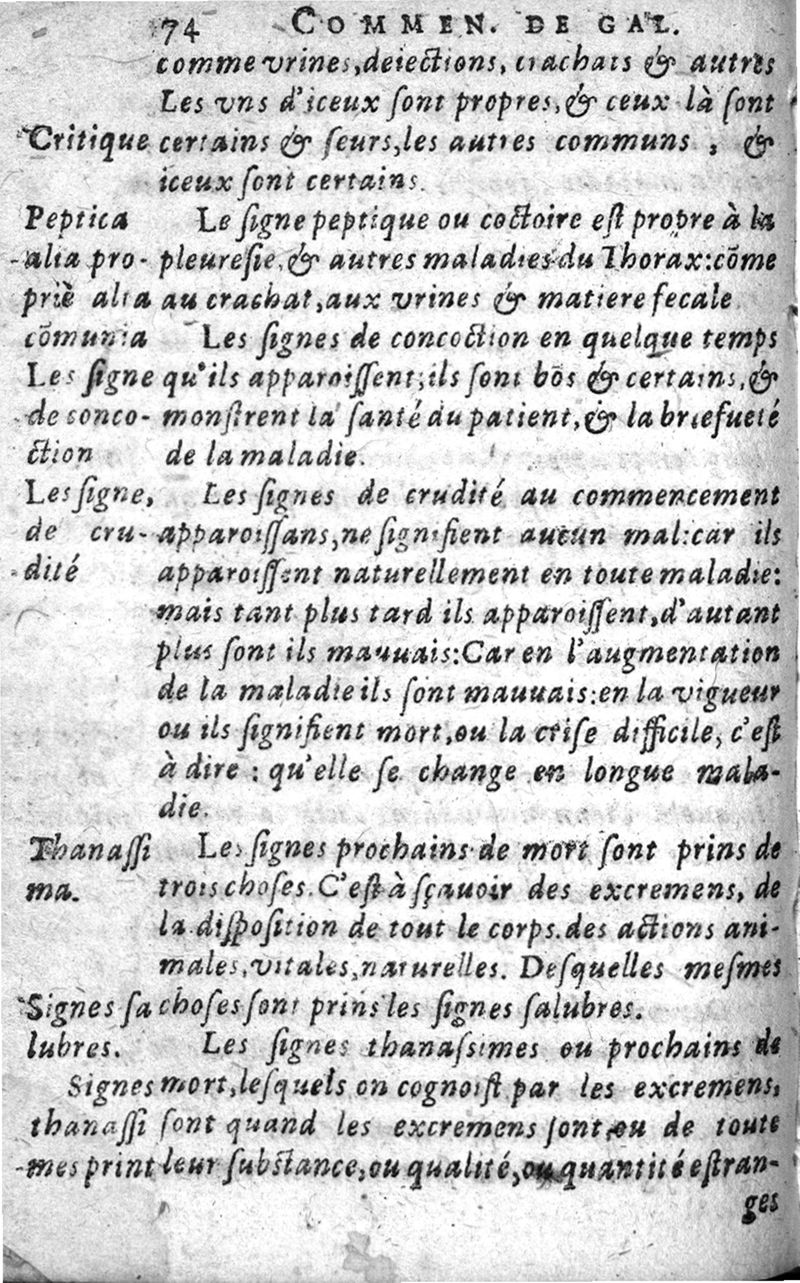 74 COMMEN. DE GAL.
comme vrines, deiections, crachats & autres
Les vns d'iceux ſont propres, & ceux là ſont
Critique certains & ſeurs, les autres communs, &
iceux ſont certains.
Peptica Le ſigne peptique ou coctoire eſt propre à la
alia pro- pleureſie, & autres maladies du Thorax: cõme
priè alia au crachat, aux vrines & matiere fecale
cõmunia Les ſignes de concoction en quelque temps
Les ſigne qu'ils apparoiſſent, ils ſont bõs & certains, &
de conco- monſtrent la ſanté du patient, & la briefueté
ction de la maladie.
Les ſigne, Les ſignes de crudité au commencement
de cru- apparoiſſans, ne ſignifient aucun mal: car ils
dité apparoiſſent naturellement en toute maladie:
mais tant plus tard ils apparoiſſent, d'autant
plus ſont ils mauuais: Car en l'augmentation
de la maladie ils ſont mauuais: en la vigueur
ou ils ſignifient mort, ou la criſe difficile, c'eſt
à dire : qu'elle ſe change en longue mala-
die.
Thanaſſi Les ſignes prochains de mort ſont prins de
ma. trois choſes. C'eſt à ſçauoir des excremens, de
la diſpoſition de tout le corps. des actions ani-
males, vitales, naturelles. Deſquelles meſmes
Signes ſa choſes ſont prins les ſignes ſalubres.
lubres. Les ſignes thanaſsimes ou prochains de
Signes mort, leſquels on cognoiſt par les excremens,
thanaſſi ſont quand les excremens ſont, ou de toute
mes print leur ſubſtance, ou qualité, ou quantité eſtran-
ges